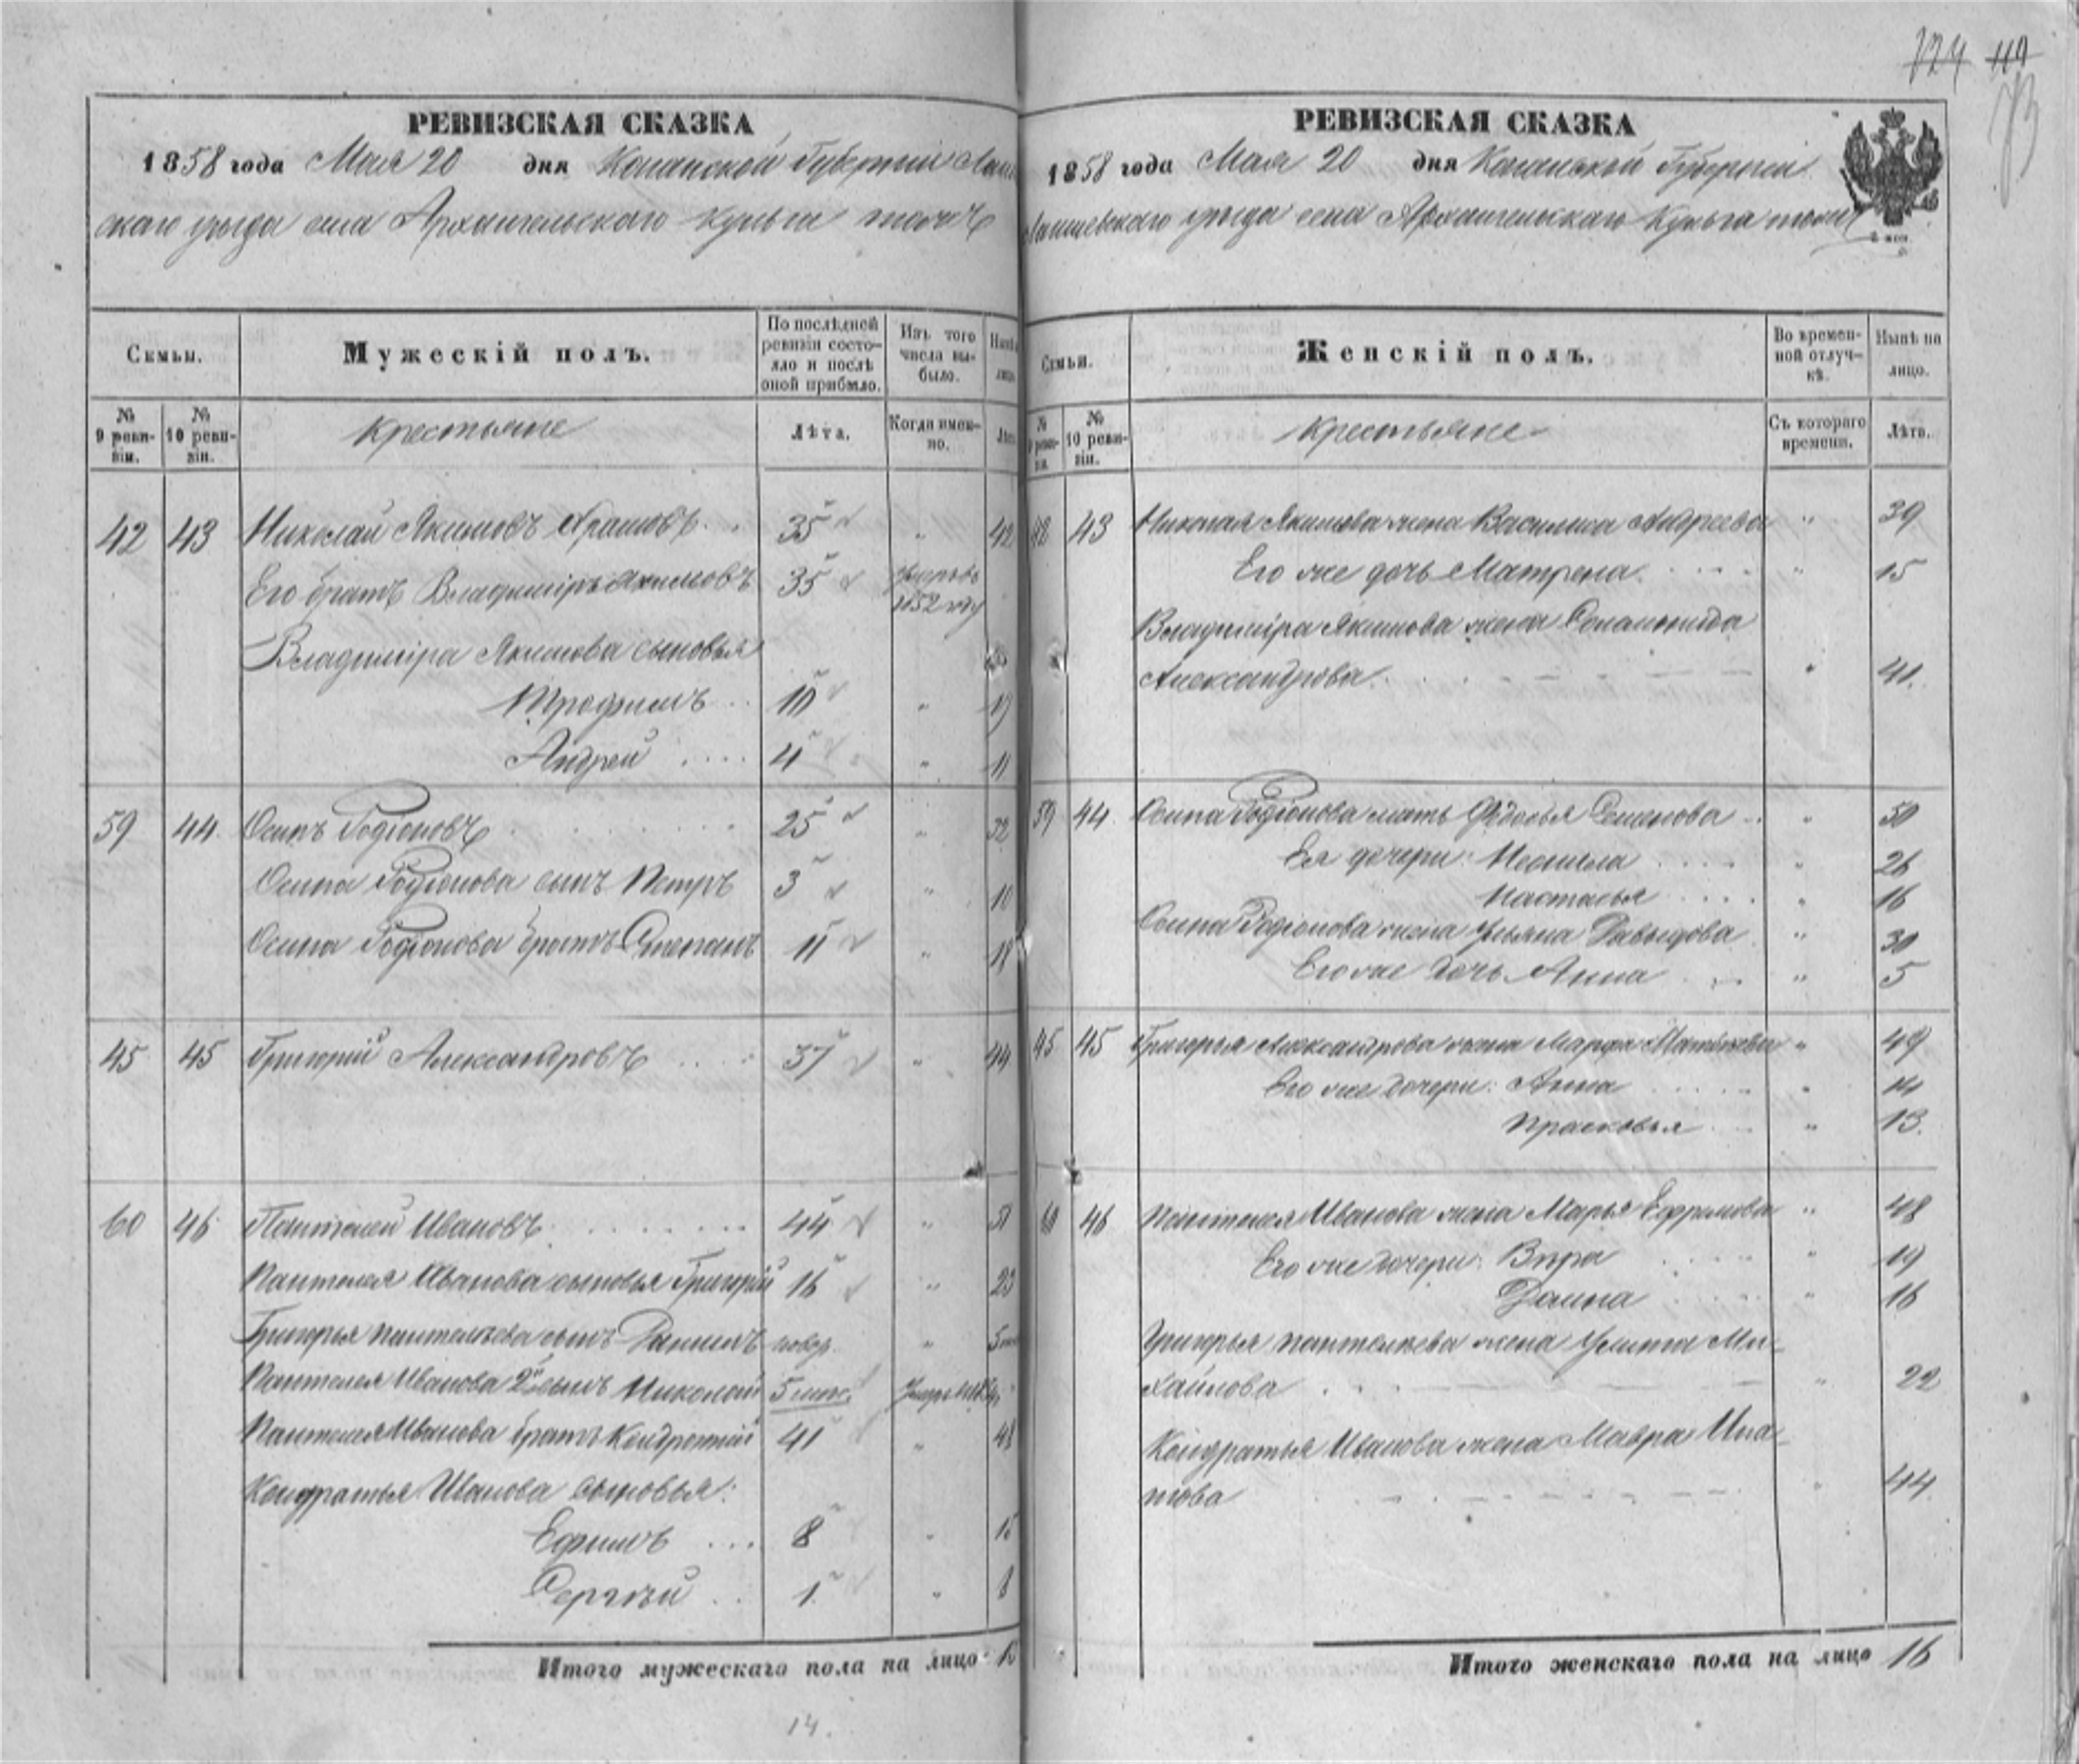 124 119
73
РЕВИЗСКАЯ СКАЗКА
1858 года Мая 20 дня Казанской Губерніи Лаи
скаго уѣзда села Архангельскаго Кульга тожъ
Семьи.
Мужескій полъ.
По послѣдней ревизіи состояло и послѣ оной прибыло.
Изъ того числа выбыло.
Нынѣ
лицо
№ 9 ревизіи.
№ 10 ревизіи.
Крестьяне
Лѣта.
Когда именно.
Лѣта
42 43 Николай Якимовъ 35 " 42
Его братъ Владиміръ Якимовъ 35 умеръ въ 1852 году
Владиміра Якимова сыновья
Трофимъ . . 10 " 17
Андрей . . . . 4 " 11
59 44 Осипъ Родіоновъ 25 " 32
Осипа Родіонова сынъ Петръ 3 " 10
Осипа Родіонова братъ Степанъ 11 " 18
45 45 Григорій Александровъ 37 " 44
60 46 Пантелей Ивановъ 44 " 51
Пантелея Иванова сыновья Григорій 16 " 23
Григорья Пантелѣева сынъ Данилъ новор. " 5 мес
Пантелея Иванова 2й сынъ Николай 5 мес.
Пантелея Иванова братъ Кондратій 41 " 48
Кондратья Иванова сыновья:
Ефимъ . . . 8 " 15
Сергѣй . . 1 " 8
Итого мужескаго пола на лицо
14.
РЕВИЗСКАЯ СКАЗКА
1858 года Мая 20 дня Казанской Губерніи
Лаишевскаго уѣзда села Архангельскаго Кульга тожъ
Семьи.
Женскій полъ.
Во временной отлучкѣ.
Нынѣ на лицо.
№ 9 ревизіи.
№ 10 ревизіи.
Крестьяне
Съ котораго времени.
Лѣта.
42 43 Николая Якимова жена Василиса Андреева " 39
Его же дочь Матрена " 15
Владиміра Якимова жена Соломонида
Александрова " 41.
59 44 Осипа Родіонова мать Федосья Семенова " 50
Ея дочери: Неонила " 26
Настасья " 16
Осипа Родіонова жена Ульяна Давыдова " 30
Его же дочь Анна " 5
45 45 Григорья Александрова жена Марфа Матвѣева " 49
Его же дочери: Анна " 14
Прасковья " 13.
60 46 Пантелея Иванова жена Марья Ефремова " 48
Его же дочери: Вѣра " 19
Домна " 16
Григорья Пантелѣева жена Улита Ми-
хайлова " 22
Кондратья Иванова жена Мавра Ипа-
това " 44
Итого женскаго пола на лицо 16